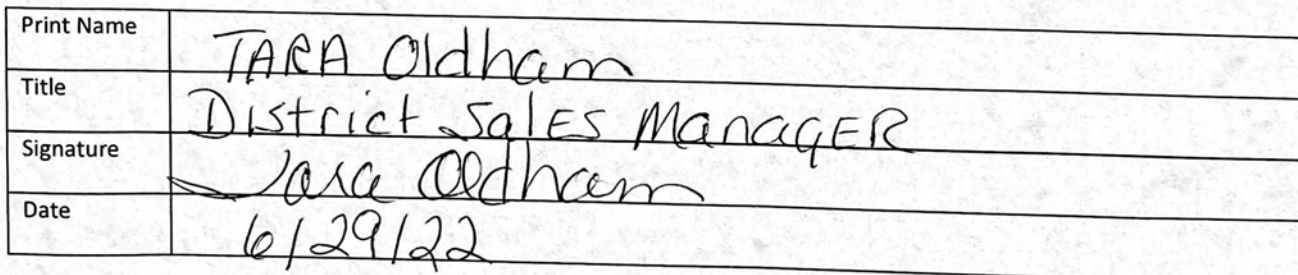 Print Name TARA Oldham
Title District Sales Manager
Signature Tara Oldham
Date 6/29/22